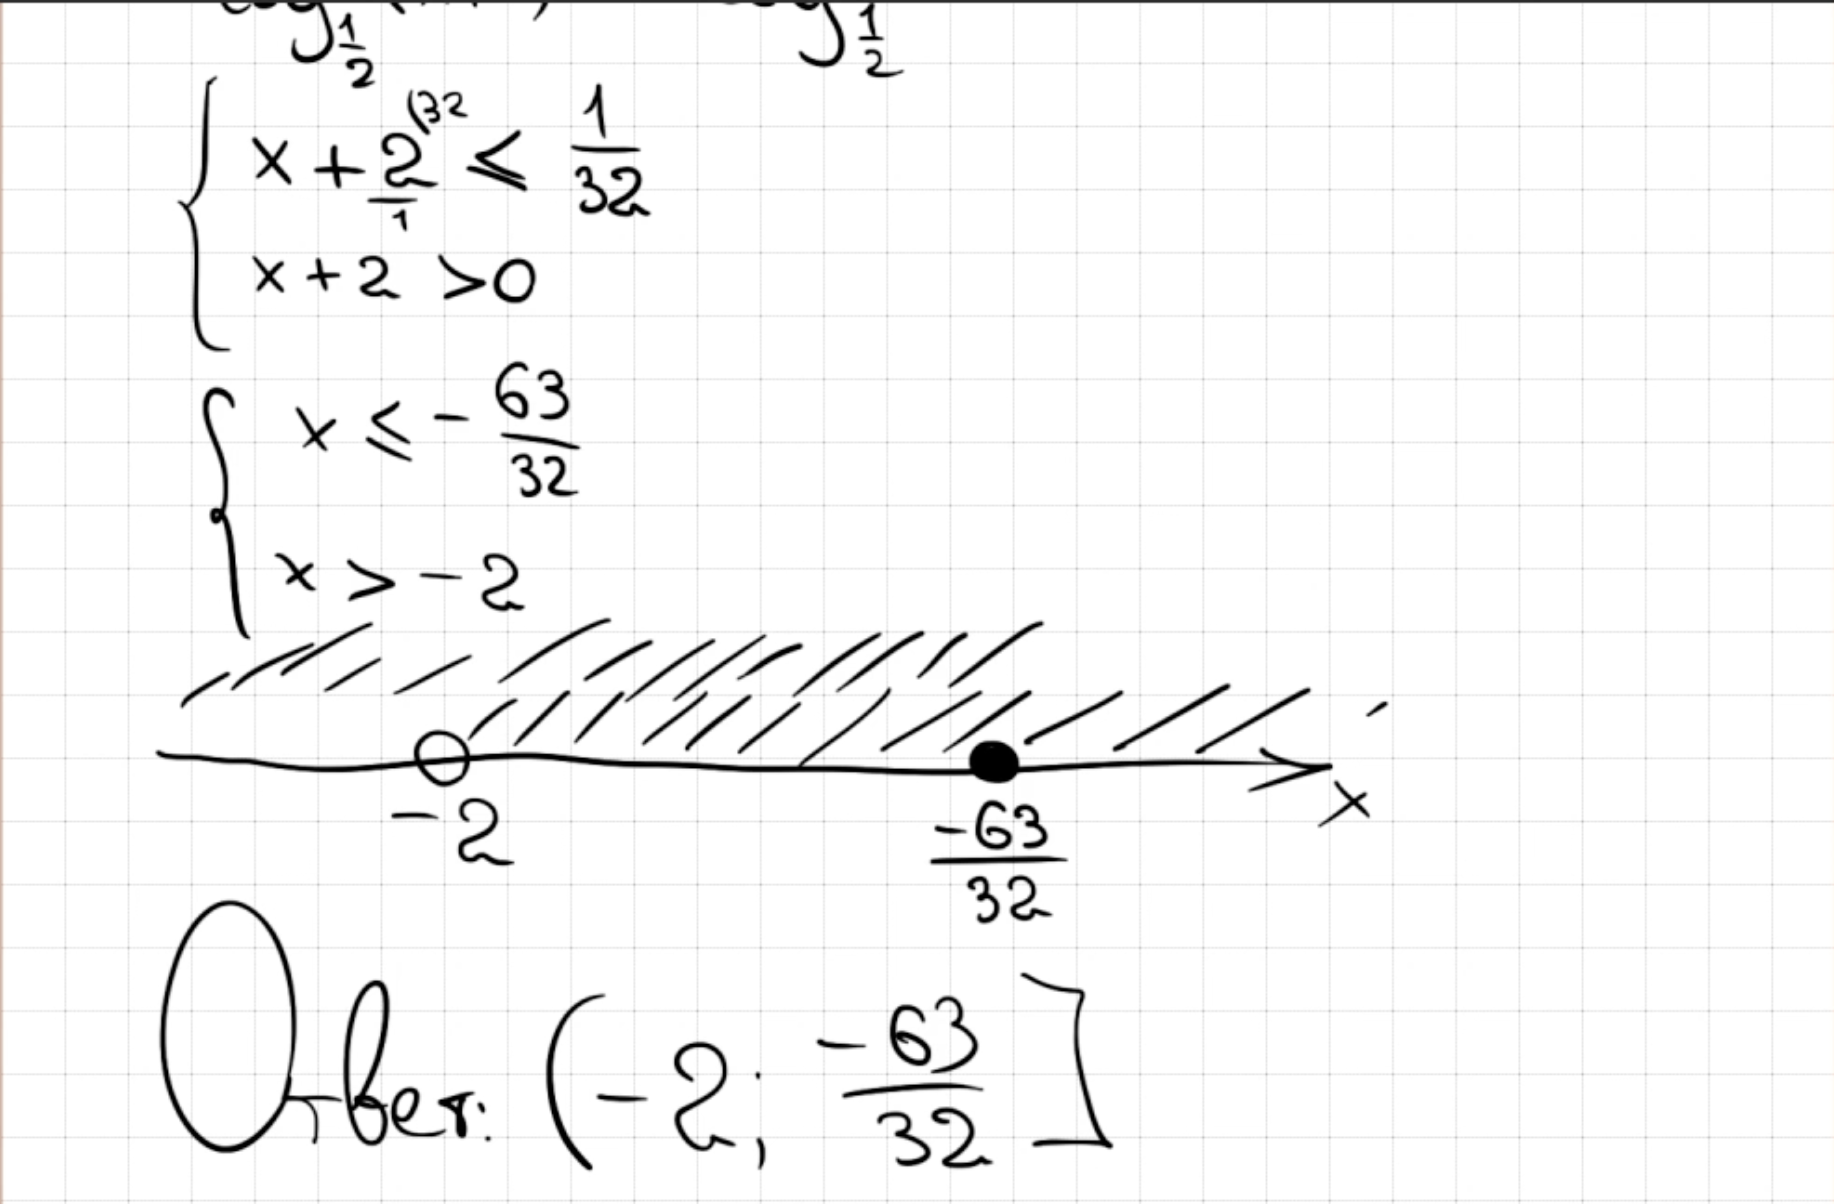 log 1/2 log 1/2
x + 2/1 (32 ⩽ 1/32
x + 2 > 0
x ⩽ - 63/32
x > - 2
-2 -63/32 x
Ответ: (-2; -63/32]